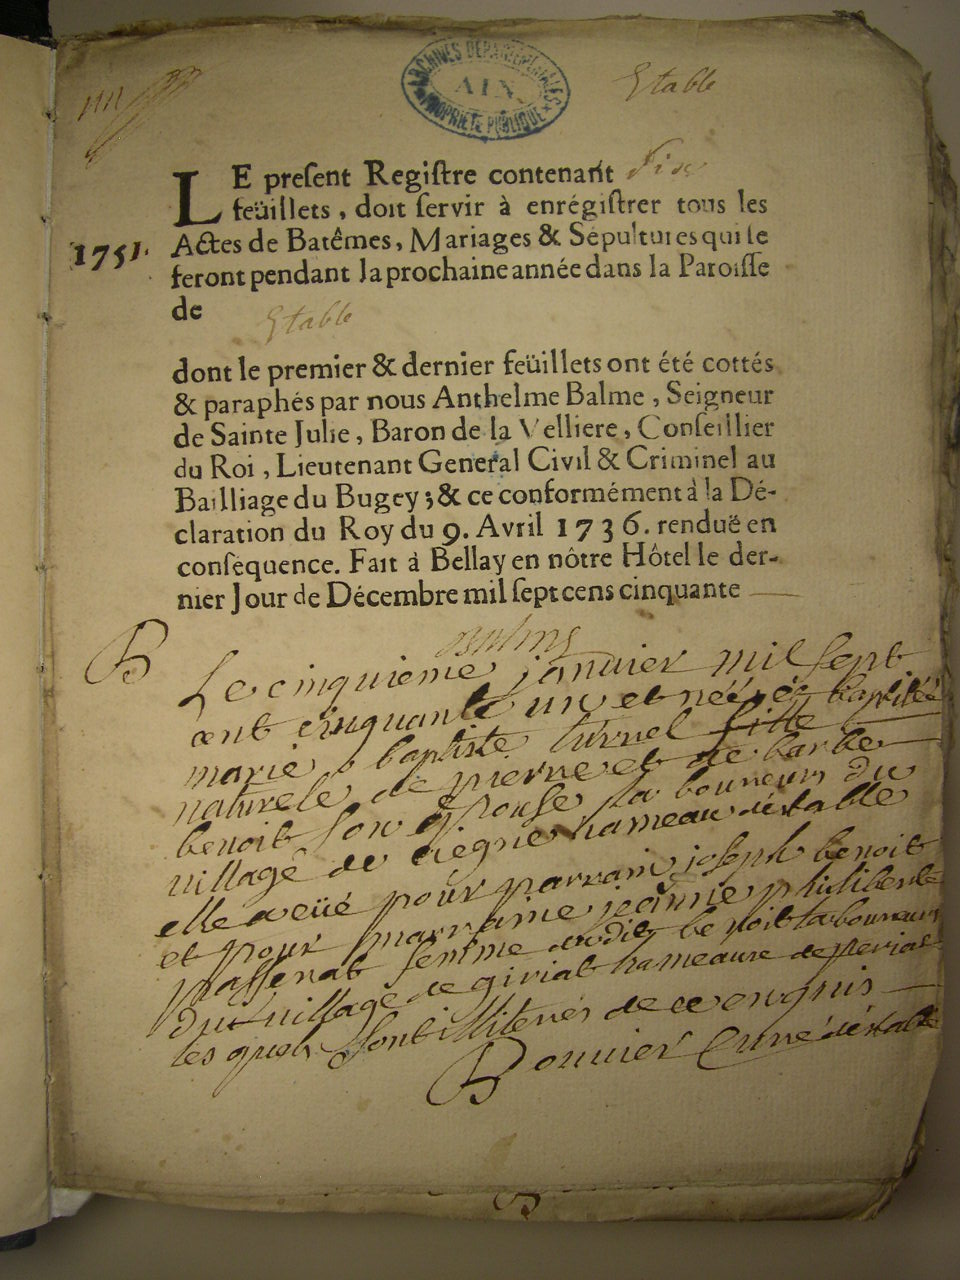 ARCHIVES DEPARTEMENTALES
AIN
PROPRIETE PUBLIQUE
Etable
LE preſent Regiſtre contenant Six
feüillets, doit ſervir à enrégiſtrer tous les
1751. Actes de Batêmes, Mariages & Sépultures qui ſe
feront pendant la prochaine année dans la Paroiſſe
de Etable
dont le premier & dernier feüillets ont été cottés
& paraphés par nous Anthelme Balme, Seigneur
de Sainte Julie, Baron de la Velliere, Conſeillier
du Roi, Lieutenant General Civil & Criminel au
Bailliage du Bugey; & ce conformément à la Dé-
claration du Roy du 9. Avril 1736. renduë en
conſéquence. Fait à Bellay en nôtre Hôtel le der-
nier Jour de Décembre mil ſept cens cinquante
B Le cinquieme janvier mil sept
cent cinquante un et neé et baptiseé
marie baptiste turnel fille
naturele de pierre et de barbe
benoit son epouse laboureurs du
village de hameau d'estable
elle a eüe pour parrain joseph benoit
et pour marraine jeanne philiberte
passerat femme dudit benoit laboureurs
du village de giriat hameaux de
les quels sont illiterés de ce enquis
Bouvier Curé d'estable